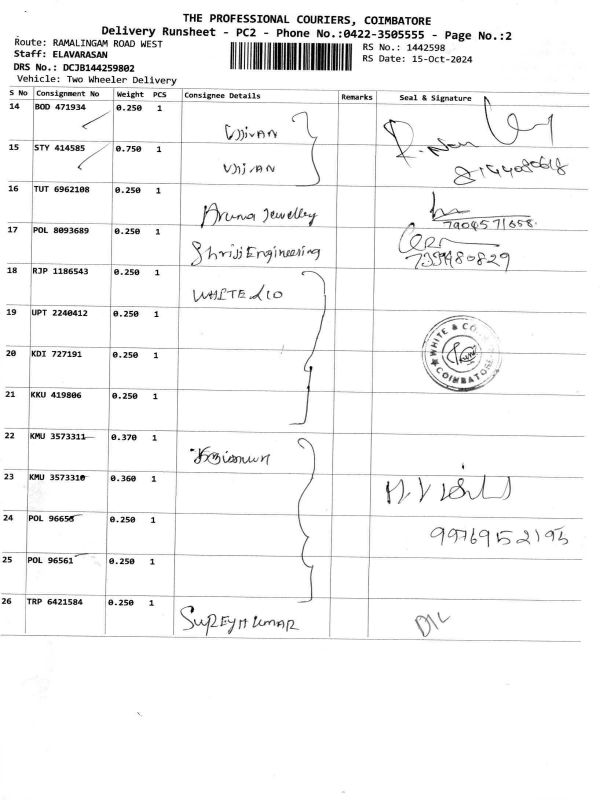 THE PROFESSIONAL COURIERS, COIMBATORE
Delivery Runsheet - PC2 - Phone No.:0422-3505555 - Page No.:2
Route: RAMALINGAM ROAD WEST RS No.: 1442598
Staff: ELAVARASAN RS Date: 15-Oct-2024
DRS No.: DCJB144259802
Vehicle: Two Wheeler Delivery
S No Consignment No Weight PCS Consignee Details Remarks Seal & Signature
14 BOD 471934 0.250 1
15 STY 414585 0.750 1
16 TUT 6962108 0.250 1 Aruna Jewelley
7904571658
17 POL 8093689 0.250 1 Shriji Engineering
18 RJP 1186543 0.250 1
19 UPT 2240412 0.250 1
WHITE & CO
COIMBATORE
20 KDI 727191 0.250 1
21 KKU 419806 0.250 1
22 KMU 3573311 0.370 1
23 KMU 3573310 0.360 1
24 POL 96656 0.250 1 9976952195
25 POL 96561 0.250 1
26 TRP 6421584 0.250 1